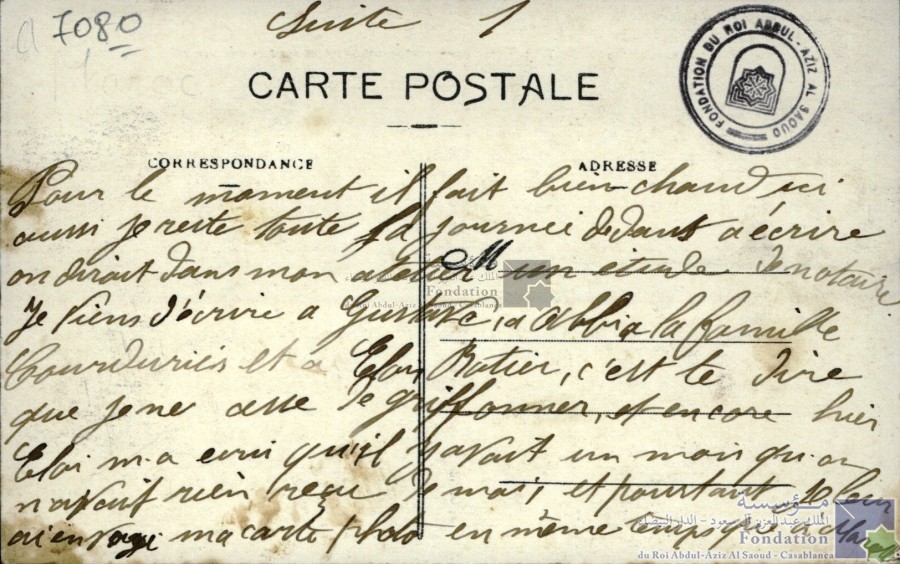 7080
Suite 1
FONDATION DU ROI ABDUL-AZIZ AL SAOUD
CARTE POSTALE
CORRESPONDANCE
ADRESSE
Pour le moment il fait bien chaud ici
aussi je reste toute la journeé dedans a écrire
on dirait dans mon atelier un etude de notaire
M
Je viens d'écrire a Gustave, a Abbi a la famille
Courduriés et a Eloi Ratier, c'est te dire
que je ne cesse de griffonner, et encore hier
Eloi m'a ecrit qu'il y avait un mois qu'on
n'avait rien reçu de moi, et pourtant je leur
ai envoyé ma carte photo en même temps qu'a
مؤسسة
الملك عبدالعزيز آل سعود - الدار البيضاء
Fondation
du Roi Abdul-Aziz Al Saoud - Casablanca